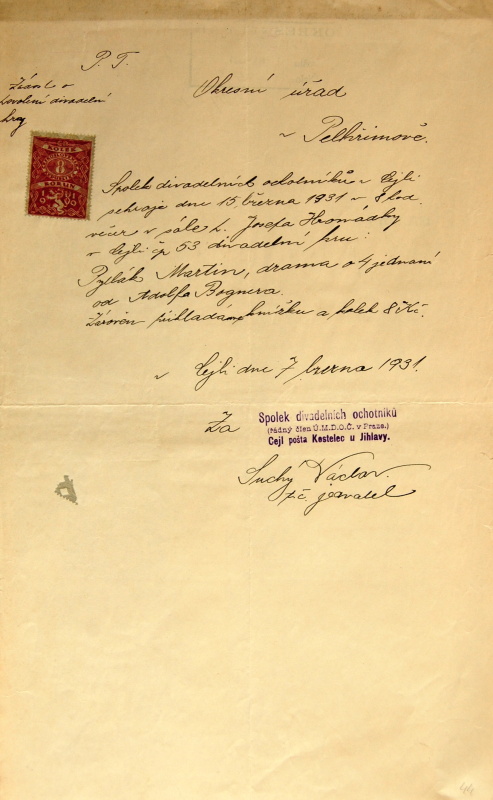 P. T.
Žádost o
povolení divadelní
hry
Okresní úřad
v Pelhřimově.
KOLEK
8
KORUN
Spolek divadelních ochotníků v Cejli
sehraje dne 15 března 1931 v 8 hod
večer v sále p. Josefa Hromádky
v Cejli čp 53 divadelní hru:
Pytlák Martin, drama o 4 jednání
od Adolfa Bognera.
Zároveň přikládáme knížku a kolek 8 Kč.
v Cejli dne 7 března 1931.
Za
Spolek divadelních ochotníků
(řádný člen Ú.M.D.O.Č. v Praze.)
Cejl pošta Kostelec u Jihlavy.
Suchý Václav.
t.č. jednatel
44